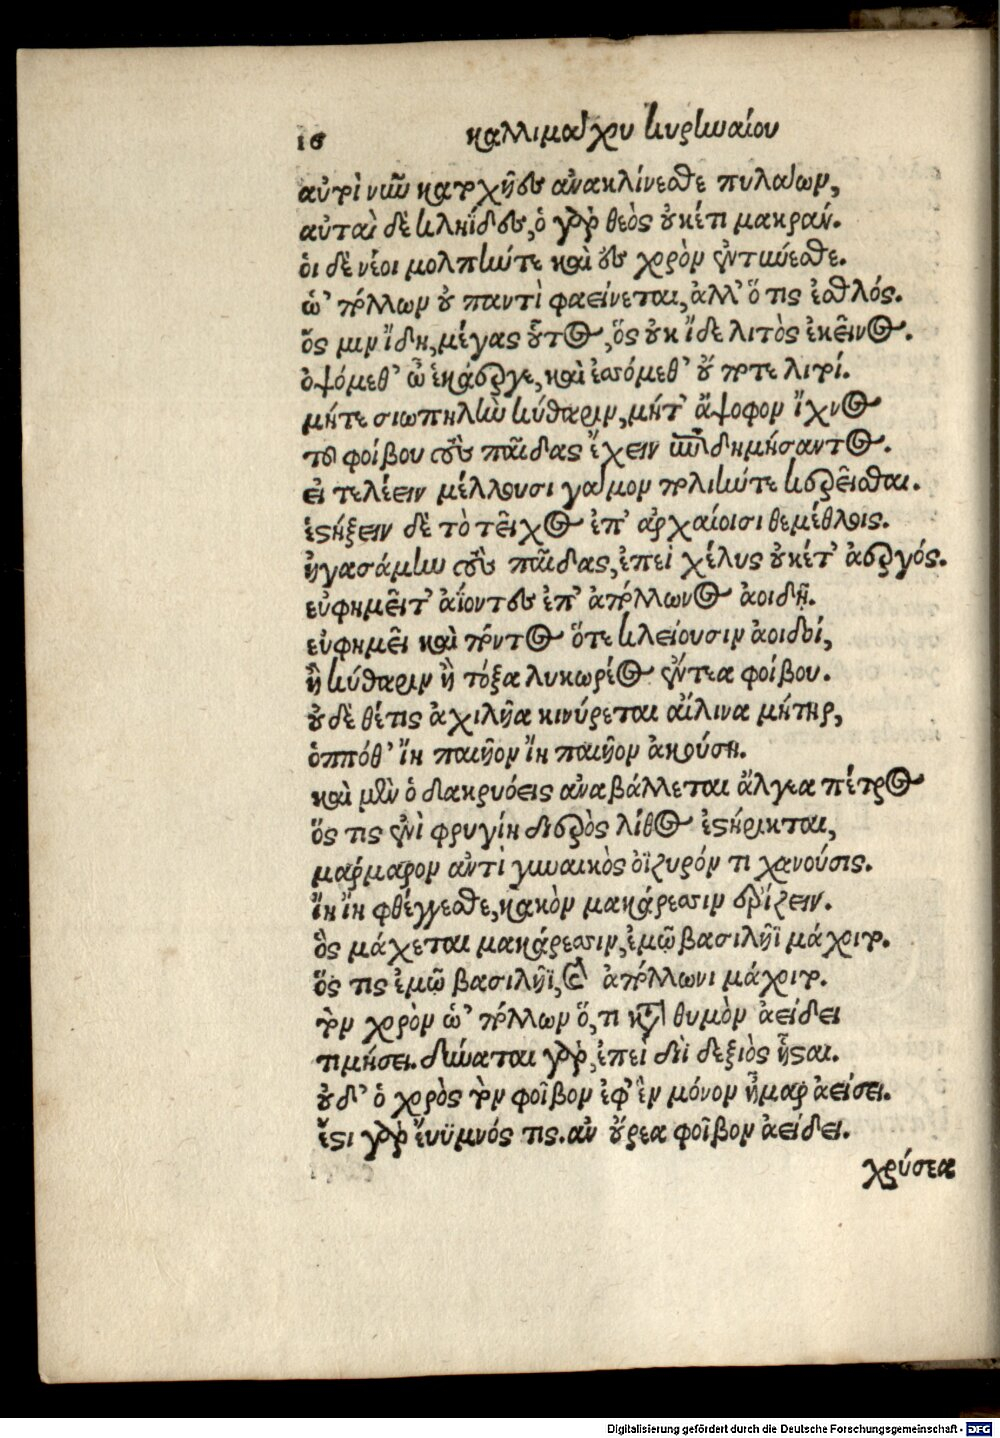 16 καλλιμάχου κυρηναίου
αὐτοὶ νῦν κατοχῆες ἀνακλίνεσθε πυλάων,
αὐταὶ δὲ κληΐδες, ὁ γὰρ θεὸς οὐκέτι μακράν.
οἱ δὲ νέοι μολπήν τε καὶ ἐς χορὸν ἐντύνεσθε.
ὡ᾽ πόλλων οὐ παντὶ φαείνεται, ἀλλ᾽ ὅ τις ἐσθλός.
ὅς μιν ἴδῃ, μέγας οὗτος, ὃς οὐκ ἴδε λιτὸς ἐκεῖνος.
ὀψόμεθ᾽ ὦ ἑκάεργε, καὶ ἐσσόμεθ᾽ οὔ ποτε λιτοί.
μήτε σιωπηλὴν κίθαριν, μήτ᾽ ἄψοφον ἴχνος
τοῦ φοίβου τοὺς παῖδας ἔχειν ἐπιδημήσαντος.
εἰ τελέειν μέλλουσι γάμον πολιήν τε κερεῖσθαι.
ἑστήξειν δὲ τὸ τεῖχος ἐπ᾽ ἀρχαίοισι θεμέθλοις.
ἠγασάμην τοὺς παῖδας, ἐπεὶ χέλυς οὐκέτ᾽ ἀεργός.
εὐφημεῖτ᾽ ἀΐοντες ἐπ᾽ ἀπόλλωνος ἀοιδῇ.
εὐφημεῖ καὶ πόντος ὅτε κλείουσιν ἀοιδοί,
ἢ κίθαριν ἢ τόξα λυκωρέος ἔντεα φοίβου.
οὐδὲ θέτις ἀχιλῆα κινύρεται αἴλινα μήτηρ,
ὁππόθ᾽ ἵη παιῆον ἵη παιῆον ἀκούσῃ.
καὶ μὲν ὁ δακρυόεις ἀναβάλλεται ἄλγεα πέτρος
ὅς τις ἐνὶ φρυγίῃ διερὸς λίθος ἐστήρικται,
μάρμαρον ἀντὶ γυναικὸς ὀϊζυρόν τι χανούσης.
ἵη ἵη φθέγγεσθε, κακὸν μακάρεσσιν ἐρίζειν.
ὃς μάχεται μακάρεσσιν, ἐμῷ βασιλῆϊ μάχοιτο.
ὅς τις ἐμῷ βασιλῆϊ, καὶ ἀπόλλωνι μάχοιτο.
τὸν χορὸν ὡ᾽ πόλλων ὅ, τι κατὰ θυμὸν ἀείδει
τιμήσει. δύναται γὰρ, ἐπεὶ διῒ δεξιὸς ἧσται.
οὐδ᾽ ὁ χορὸς τὸν φοῖβον ἐφ᾽ ἓν μόνον ἦμαρ ἀείσει.
ἔστι γὰρ ἔυϋμνός τις. ἀν οὔρεα φοῖβον ἀείδει.
χρύσεα
Digitalisierung gefördert durch die Deutsche Forschungsgemeinschaft - DFG